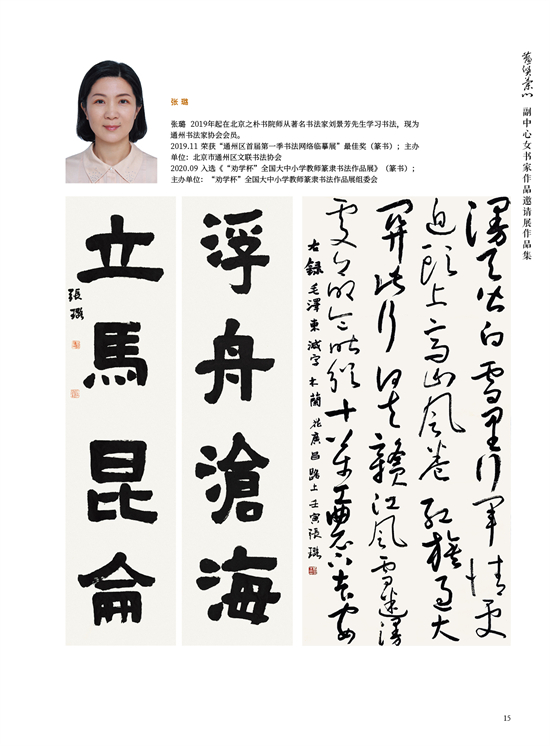 张 璐
张璐 2019年起在北京之朴书院师从著名书法家刘景芳先生学习书法，现为
通州书法家协会会员。
2019.11 荣获“通州区首届第一季书法网络临摹展”最佳奖（篆书）；主办
单位：北京市通州区文联书法协会
2020.09 入选《“劝学杯”全国大中小学教师篆隶书法作品展》（篆书）；
主办单位：“劝学杯”全国大中小学教师篆隶书法作品展组委会
副中心女书家作品邀请展作品集
漫天皆白雪里行軍情更
迫頭上高山風卷紅旗過大
關此行何去贛江風雪迷漫
處命令昨頒十萬工農下吉安
右錄毛澤東減字木蘭花廣昌路上壬寅張璐
浮舟滄海
立馬昆侖
張璐
15